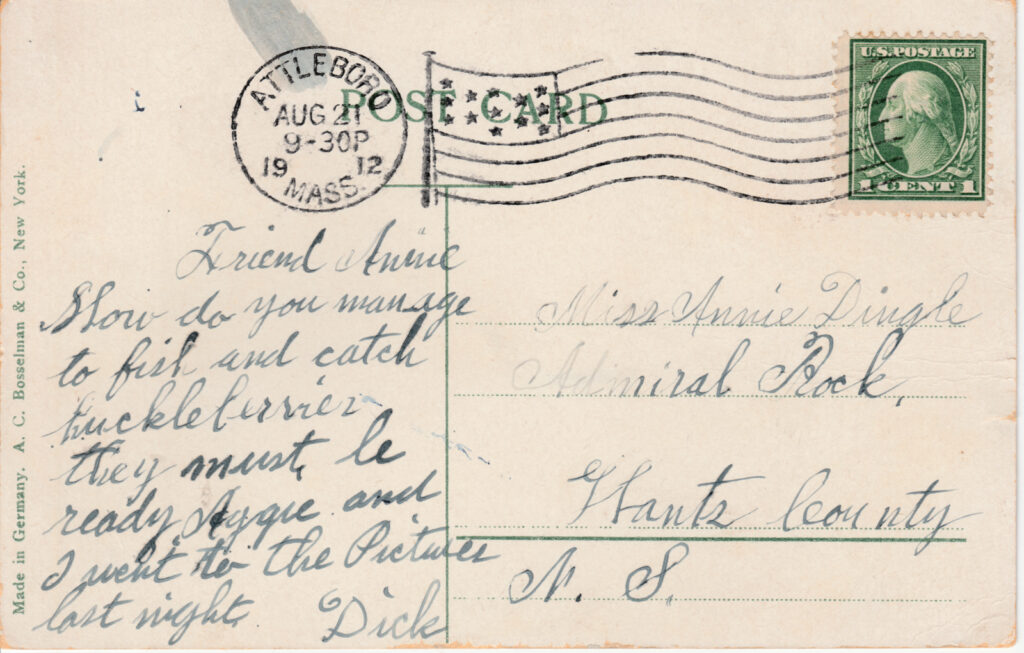 ATTLEBORO
AUG 21
9-30P
19 12
MASS.
POST CARD
U.S. POSTAGE
1 CENT 1
Friend Annie
How do you manage
to fish and catch
huckleberries
they must be
ready Aggie and
I went to the Pictures
last night.
Dick
Miss Annie Dingle
Admiral Rock,
Hants County
N. S.
Made in Germany. A. C. Bosselman & Co., New York.